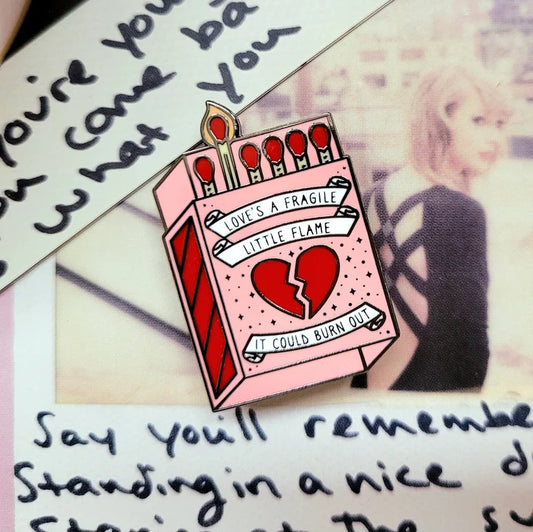 you're you
you come ba
what you
LOVE'S A FRAGILE
LITTLE FLAME
IT COULD BURN OUT
Say you'll remember
Standing in a nice d